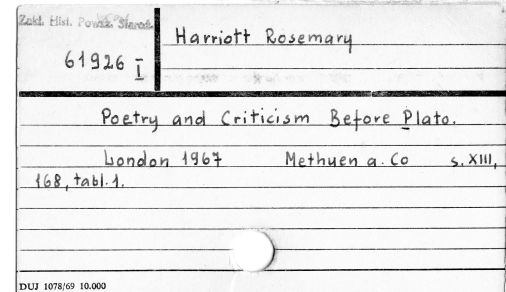 Zakł. Hist. Powsz. Staroż.
Harriott Rosemary
61926 I
Poetry and Criticism Before Plato.
London 1967 Methuen a. Co s. XIII,
168, tabl. 1.
DUJ 1078/69 10.000